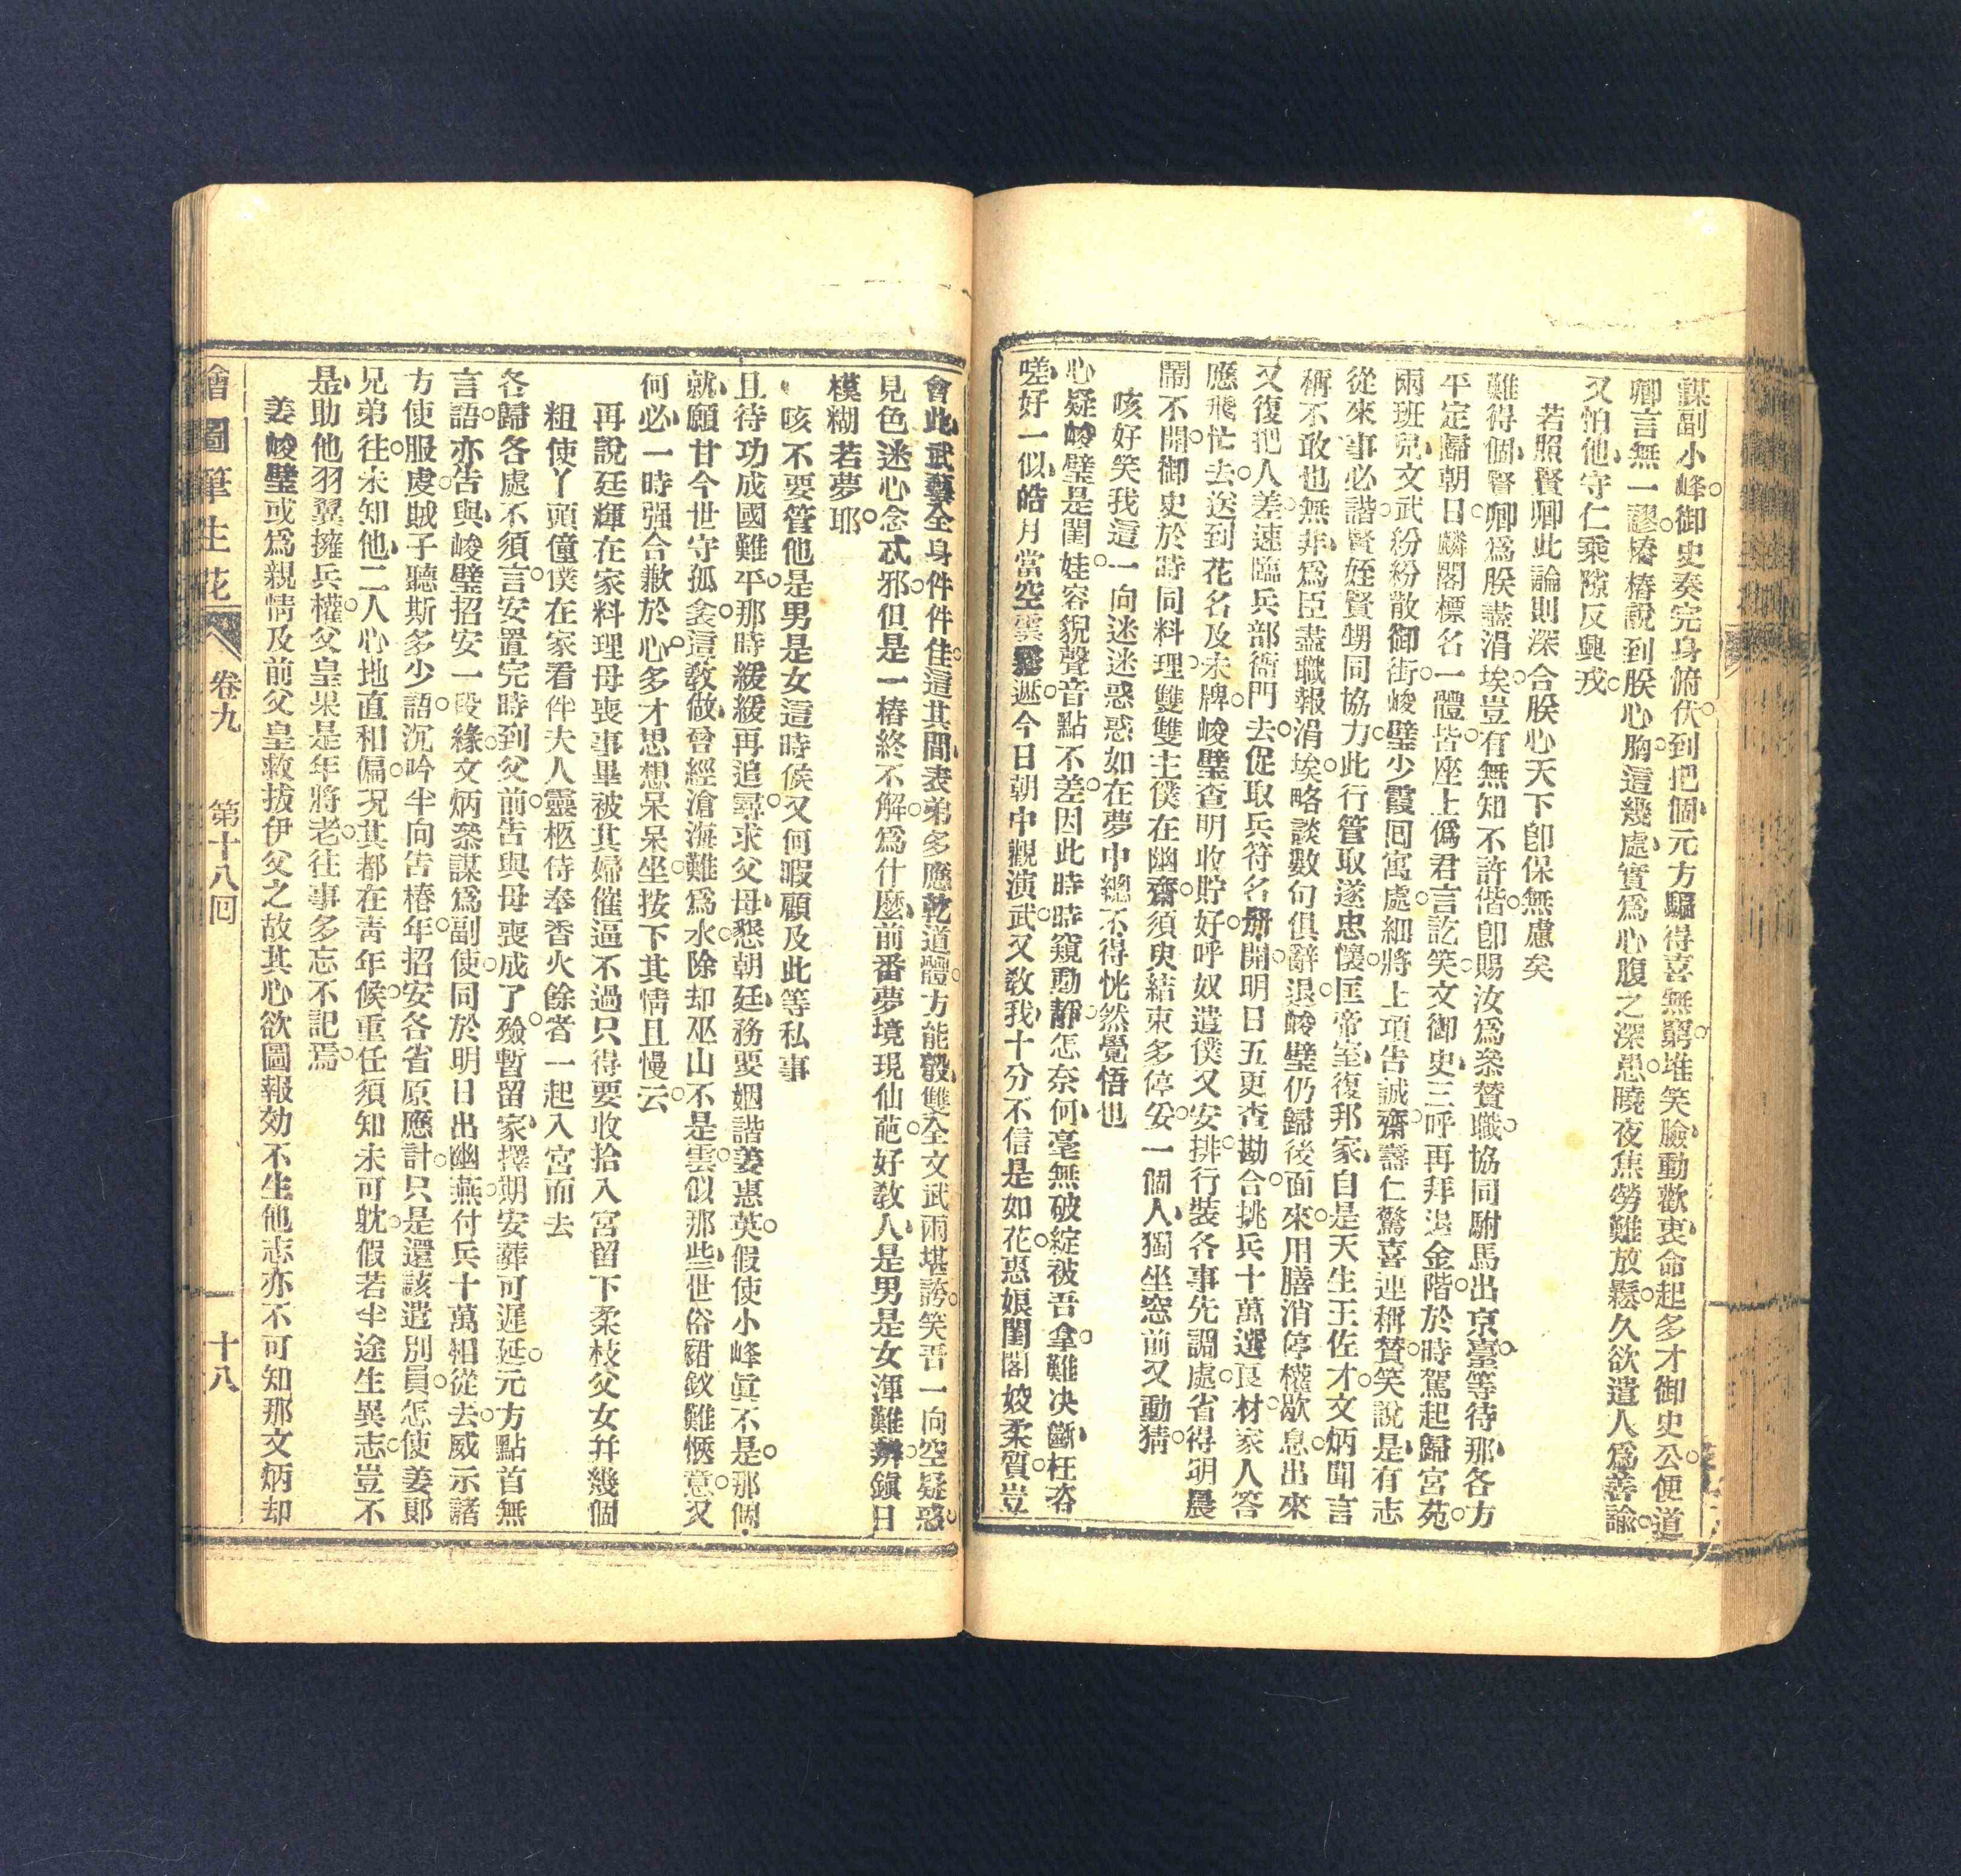 謀副小峰。御史奏完身俯伏。到把個、元方驅得喜無窮。堆笑臉、動歡衷。命起多才御史公。便道
卿言無一謬。樁樁說到朕心胸。這幾處、實爲心腹之深患。曉夜焦勞難放鬆。久欲遣人爲善諭。
又怕他、守仁乘隙反興戎。
若照賢卿此論則深合朕心天下卽保無慮矣
難得個、賢卿爲朕盡涓埃。豈有無知不許偕。卽賜汝爲叅贊職。協同駙馬出京臺。等待那、各方
平定歸朝日。麟閣標名一體皆。座上僞君言言訖。笑文御史、三呼再拜退金階。於時駕起歸宮苑。
兩班兒、文武紛紛散御街。峻璧少霞囘寓處。細將上項告誠齋。壽仁驚喜連稱贊。笑說是、有志
從來事必諧。賢姪賢甥同協力。此行管取遂忠懷。匡帝室、復邦家。自是天生王佐才。文炳聞言
稱不敢。也無非、爲臣盡職報涓埃。略談數句俱辭退。峻璧仍歸後面來。用膳消停權歇息。出來
又復把人差。速臨兵部衙門去。促取兵符名册開。明日五更查勘合。挑兵十萬選良材。家人答
應飛忙去。送到花名及未牌。峻璧查明收貯好。呼奴遣僕又安排。行裝各事先調處。省得明晨
鬧不開。御史於時同料理。雙雙主僕在幽齋。須臾結束多停妥。一個人、獨坐窓前又動猜
咳好笑我這一向迷迷惑惑如在夢中總不得恍然覺悟也
心疑峻璧是閨娃。容貌聲音點不差。因此時時窺動靜。怎奈何、毫無破綻被吾拿。難决斷、枉容
嗟。好一似、皓月當空雲霧遮。今日朝中觀演武。又敎我、十分不信是如花。惠娘閨閣姣柔質。豈
會此、武藝全身件件佳。這其間、表弟多應乾道體。方能彀、雙全文武兩堪誇。笑吾一向空疑惑。
見色迷心念忒邪。但是一樁終不解。爲什麼、前番夢境現仙葩。好敎人、是男是女渾難辨。鎭日
模糊若夢耶
咳不要管他是男是女這時候又何暇顧及此等私事
且待功成國難平。那時緩緩再追尋。求父母、懇朝廷。務要姻諧姜惠英。假使小峰眞不是。那個、
就願甘今世守孤衾。這敎做、曾經滄海難爲水。除却巫山不是雲。似那些、世俗裙釵難愜意。又
何必、一時强合歉於心。多才思想呆呆坐。按下其情且慢云。
再說廷輝在家料理母喪事畢被其婦催逼不過只得要收拾入宮留下柔枝父女幷幾個
粗使丫頭僮僕在家看伴夫人靈柩侍奉香火餘者一起入宮而去
各歸各處不須言。安置完時到父前。告與母喪成了殮。暫留家、擇期安葬可遲延。元方點首無
言語。亦告與、峻璧招安一段緣。文炳叅謀爲副使。同於明日出幽燕。付兵十萬相從去。威示諸
方使服虔。賊子聽斯多少語。沉吟半向告椿年。招安各省原應計。只是還該遣別員。怎使姜鄭
兄弟往。未知他、二人心地直和偏。况其都在靑年候。重任須知未可躭。假若半途生異志。豈不
是、助他羽翼擁兵權。父皇果是年將老。往事多忘不記焉。
姜峻璧或爲親情及前父皇救拔伊父之故其心欲圖報効不生他志亦不可知那文炳却
繪圖筆生花 卷九 第十八回 十八